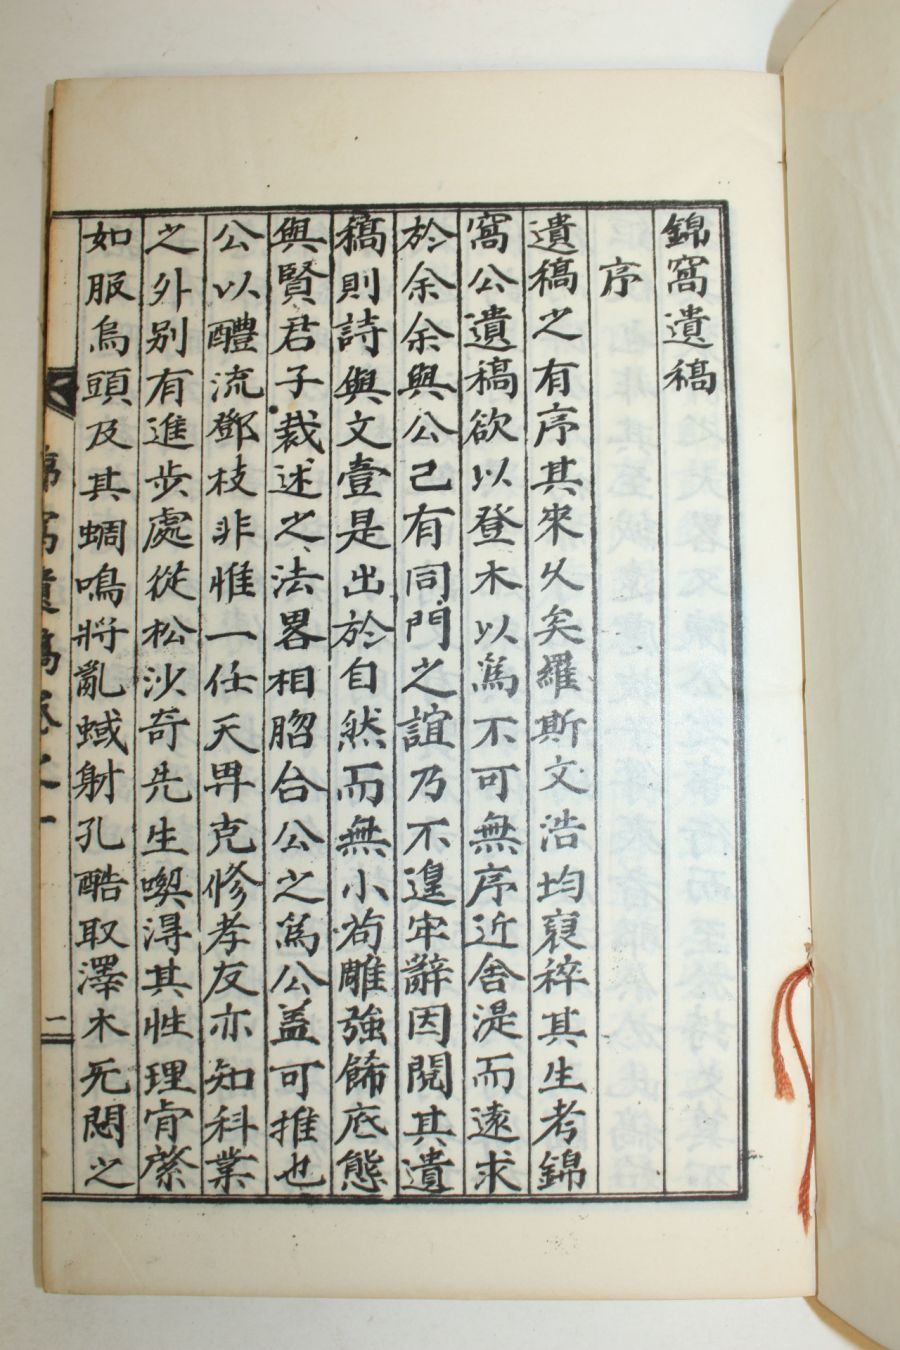 錦窩遺稿
序
遺稿之有序其來久矣羅斯文浩均裒稡其生考錦
窩公遺稿欲以登木以爲不可無序近舍湜而遠求
於余余與公己有同門之誼乃不遑牢辭因閱其遺
稿則詩與文壹是出於自然而無小苟雕強餙底態
與賢君子裁述之法畧相脗合公之爲公盖可推也
公以醴流鄧枝非惟一任天畀克修孝友亦知科業
之外別有進步處從松沙奇先生喫淂其性理肯綮
如服烏頭及其蜩鳴將亂蜮射孔酷取澤木死悶之
錦窩遺稿卷之一
二